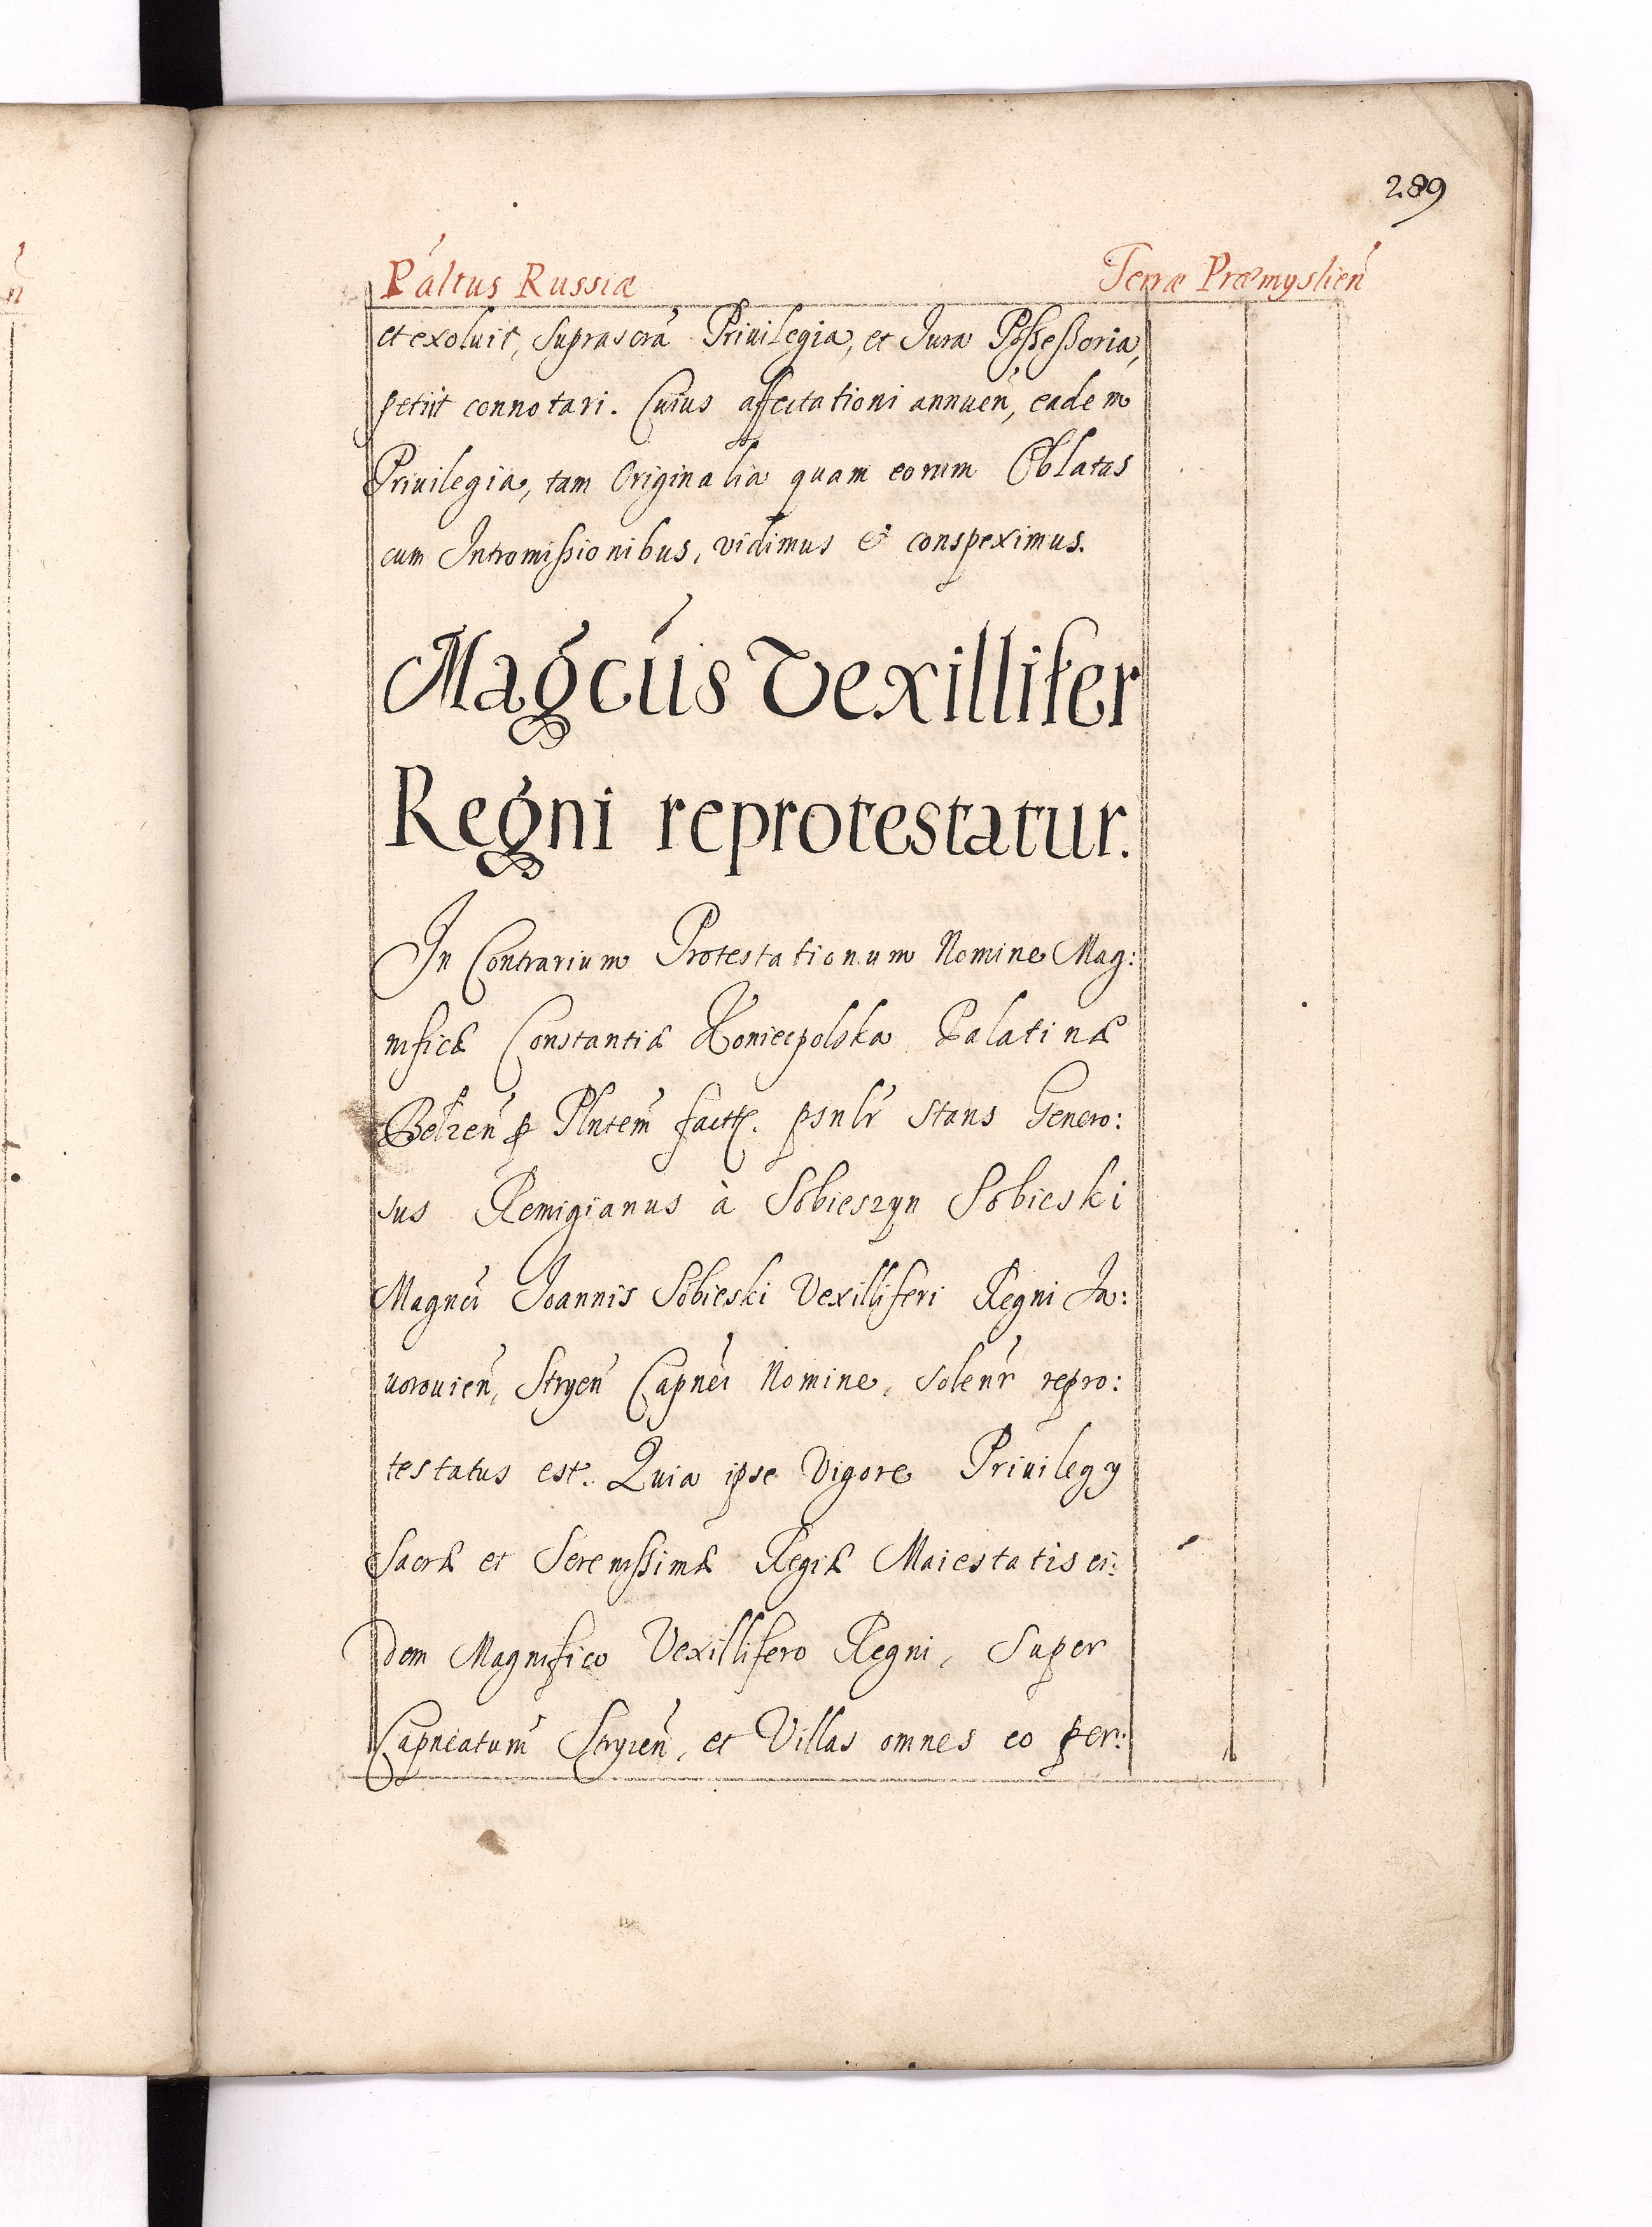 289
Páltus Russiæ Terræ Præmyslień
et exoluit, Suprascrá Priuilegia, et Jura Possessoria,
petiit connotari. Cuius affectationi annueń, eadem
Priuilegia, tam Originalia quam eorum Oblatas
cum Intromissionibus, vidimus et conspeximus.
Magcús Vexillifer
Regni reprotestatur.
In Contrarium Protestationum Nomine Mag:
nificæ Constantiæ Koniecpolska Palatinæ
Bełzeń p Plntem factt. psnlr stans Genero:
sus Remigianus à Sobieszyn Sobieski
Magnci Joannis Sobieski Vexilliferi Regni Ja:
uorouień, Stryeń Capnei Nomine, solenr repro:
testatus est. Quia ipse Vigore Priuilegy
Sacræ et Serenissimæ Regiæ Maiestatis ei:
dem Magnifico Vexillifero Regni, Super
Capneatum Stryień, et Villas omnes eo per: